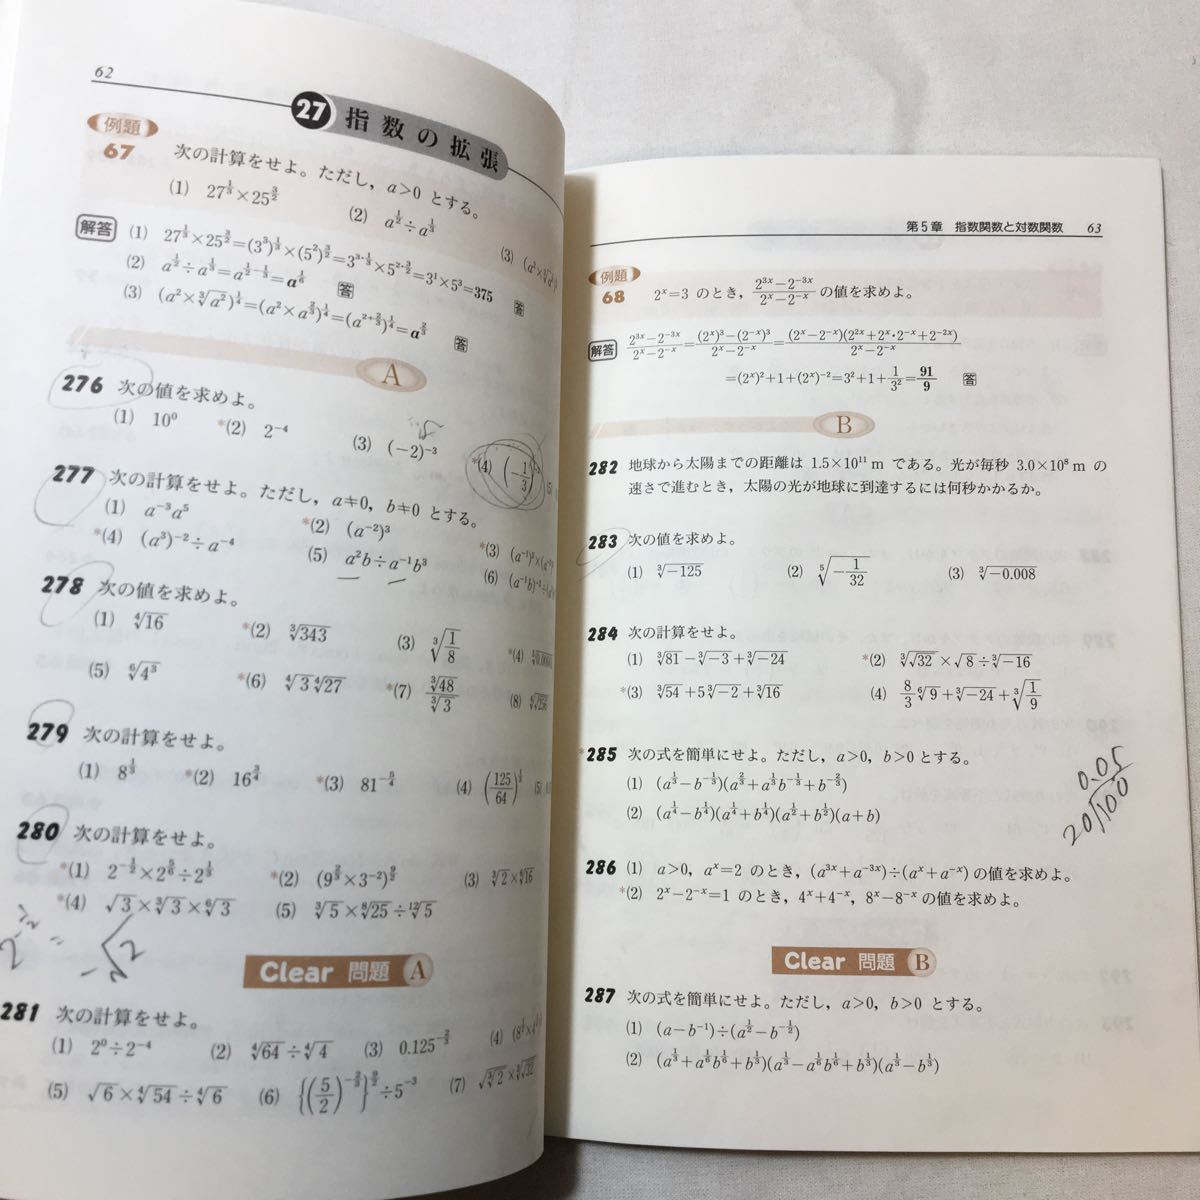 62
27 指数の拡張
例題 67 次の計算をせよ。ただし，a>0 とする。
(1) 27^{1/3}×25^{3/2} (2) a^{1/2}÷a^{1/3} (3)
解答 (1) 27^{1/3}×25^{3/2}=(3^3)^{1/3}×(5^2)^{3/2}=3^{3・1/3}×5^{2・3/2}=3^1×5^3=375 答
(2) a^{1/2}÷a^{1/3}=a^{1/2-1/3}=a^{1/6} 答
(3) (a^2×∛a^2)^{1/4}=(a^2×a^{2/3})^{1/4}=(a^{2+2/3})^{1/4}=a^{2/3} 答
A
276 次の値を求めよ。
(1) 10^0 *(2) 2^{-4} (3) (-2)^{-3} *(4) (-1/3)
277 次の計算をせよ。ただし，a≠0，b≠0 とする。
(1) a^{-3}a^5 *(2) (a^{-2})^3 *(3)
*(4) (a^3)^{-2}÷a^{-4} (5) a^2b÷a^{-1}b^3 (6)
278 次の値を求めよ。
(1) ⁴√16 *(2) ∛343 (3) ∛(1/8) *(4)
(5) ⁶√4^3 *(6) ⁴√3 ⁴√27 *(7) ∛48/∛3 (8)
279 次の計算をせよ。
(1) 8^{1/3} *(2) 16^{3/4} *(3) 81^{-5/4} (4) (125/64)^{1/3} (5)
280 次の計算をせよ。
*(1) 2^{-1/2}×2^{5/6}÷2^{1/3} *(2) (9^{2/3}×3^{-2})^{9/2} (3) ∛2×⁶√16
*(4) √3×∛3×⁶√3 (5) ∛5×⁸√25÷¹²√5
Clear 問題 A
281 次の計算をせよ。
(1) 2^0÷2^{-4} (2) ⁴√64÷⁴√4 (3) 0.125^{-2/3} (4)
(5) √6×⁴√54÷⁴√6 (6) {(5/2)^{-2/3}}^{9/2}÷5^{-3} (7)
第5章 指数関数と対数関数 63
例題 68 2^x=3 のとき，(2^{3x}-2^{-3x})/(2^x-2^{-x}) の値を求めよ。
解答 (2^{3x}-2^{-3x})/(2^x-2^{-x})=((2^x)^3-(2^{-x})^3)/(2^x-2^{-x})=(2^x-2^{-x})(2^{2x}+2^x・2^{-x}+2^{-2x})/(2^x-2^{-x})
=(2^x)^2+1+(2^x)^{-2}=3^2+1+1/3^2=91/9 答
B
282 地球から太陽までの距離は 1.5×10^{11} m である。光が毎秒 3.0×10^8 m の
速さで進むとき，太陽の光が地球に到達するには何秒かかるか。
283 次の値を求めよ。
(1) ∛-125 (2) ⁵√(-1/32) (3) ∛-0.008
284 次の計算をせよ。
(1) ∛81-∛-3+∛-24 *(2) ∛√32×√8÷∛-16
*(3) ∛54+5∛-2+∛16 (4) 8/3 ⁶√9+∛-24+∛(1/9)
*285 次の式を簡単にせよ。ただし，a>0，b>0 とする。
(1) (a^{1/3}-b^{-1/3})(a^{2/3}+a^{1/3}b^{-1/3}+b^{-2/3})
(2) (a^{1/4}-b^{1/4})(a^{1/4}+b^{1/4})(a^{1/2}+b^{1/2})(a+b)
0.05
20)100
286 (1) a>0，a^x=2 のとき，(a^{3x}+a^{-3x})÷(a^x+a^{-x}) の値を求めよ。
*(2) 2^x-2^{-x}=1 のとき，4^x+4^{-x}，8^x-8^{-x} の値を求めよ。
Clear 問題 B
287 次の式を簡単にせよ。ただし，a>0，b>0 とする。
(1) (a-b^{-1})÷(a^{1/2}-b^{-1/2})
(2) (a^{1/3}+a^{1/6}b^{1/6}+b^{1/3})(a^{1/3}-a^{1/6}b^{1/6}+b^{1/3})(a^{1/3}-b^{1/3})